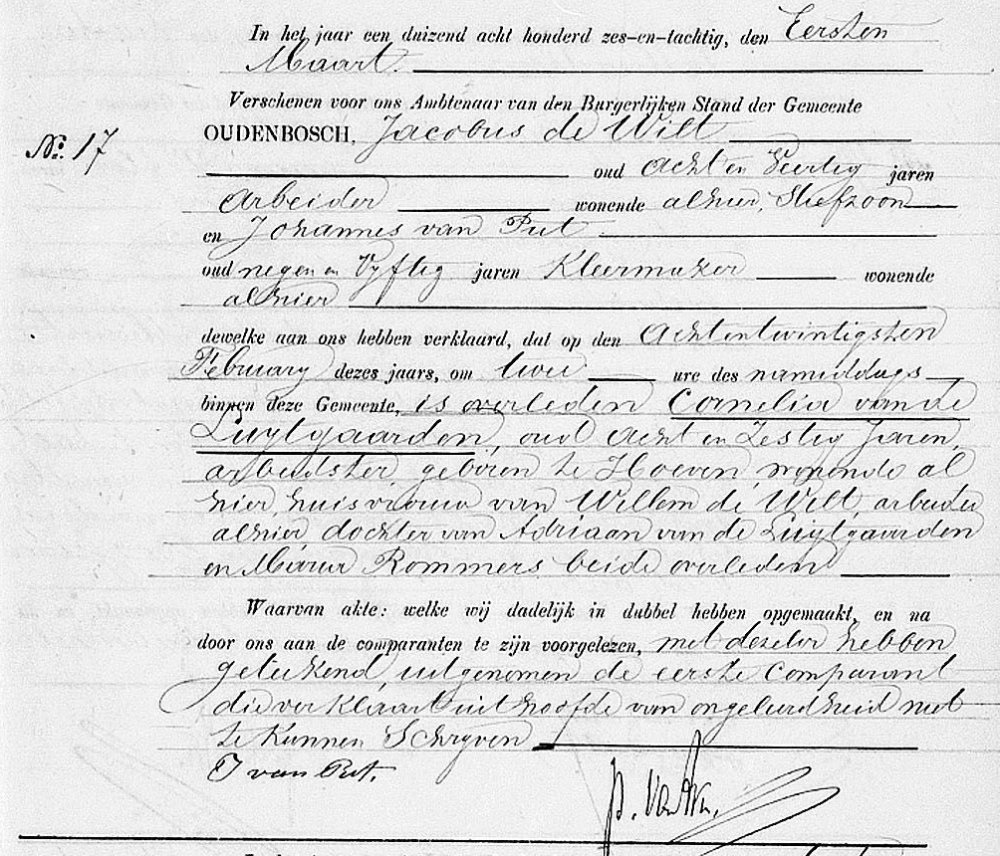 In het jaar een duizend acht honderd zes-en-tachtig, den Eersten
Maart.
Verschenen voor ons Ambtenaar van den Burgerlijken Stand der Gemeente
No. 17
OUDENBOSCH, Jacobus de Wilt
oud Acht en Veertig jaren
Arbeider wonende alhier, Stiefzoon
en Johannes van Put
oud negen en Vyftig jaren Kleermaker wonende
alhier
dewelke aan ons hebben verklaard, dat op den Achtentwintigsten
February dezes jaars, om twee ure des namiddags
binnen deze Gemeente, is overleden Cornelia van de
Luytgaarden, oud Acht en Zestig Jaren,
arbeidster, geboren te Hoeven, wonende al
hier, huisvrouw van Willem de Wilt, arbeider
alhier dochter van Adriaan van de Luytgaarden
en Maria Rommers beide overleden
Waarvan akte: welke wij dadelijk in dubbel hebben opgemaakt, en na
door ons aan de comparanten te zijn voorgelezen, met dezelve hebben
geteekend, uitgenomen de eerste Comparant
die verklaart uit hoofde van ongeleerdheid niet
te kunnen Schryven
J van Put.